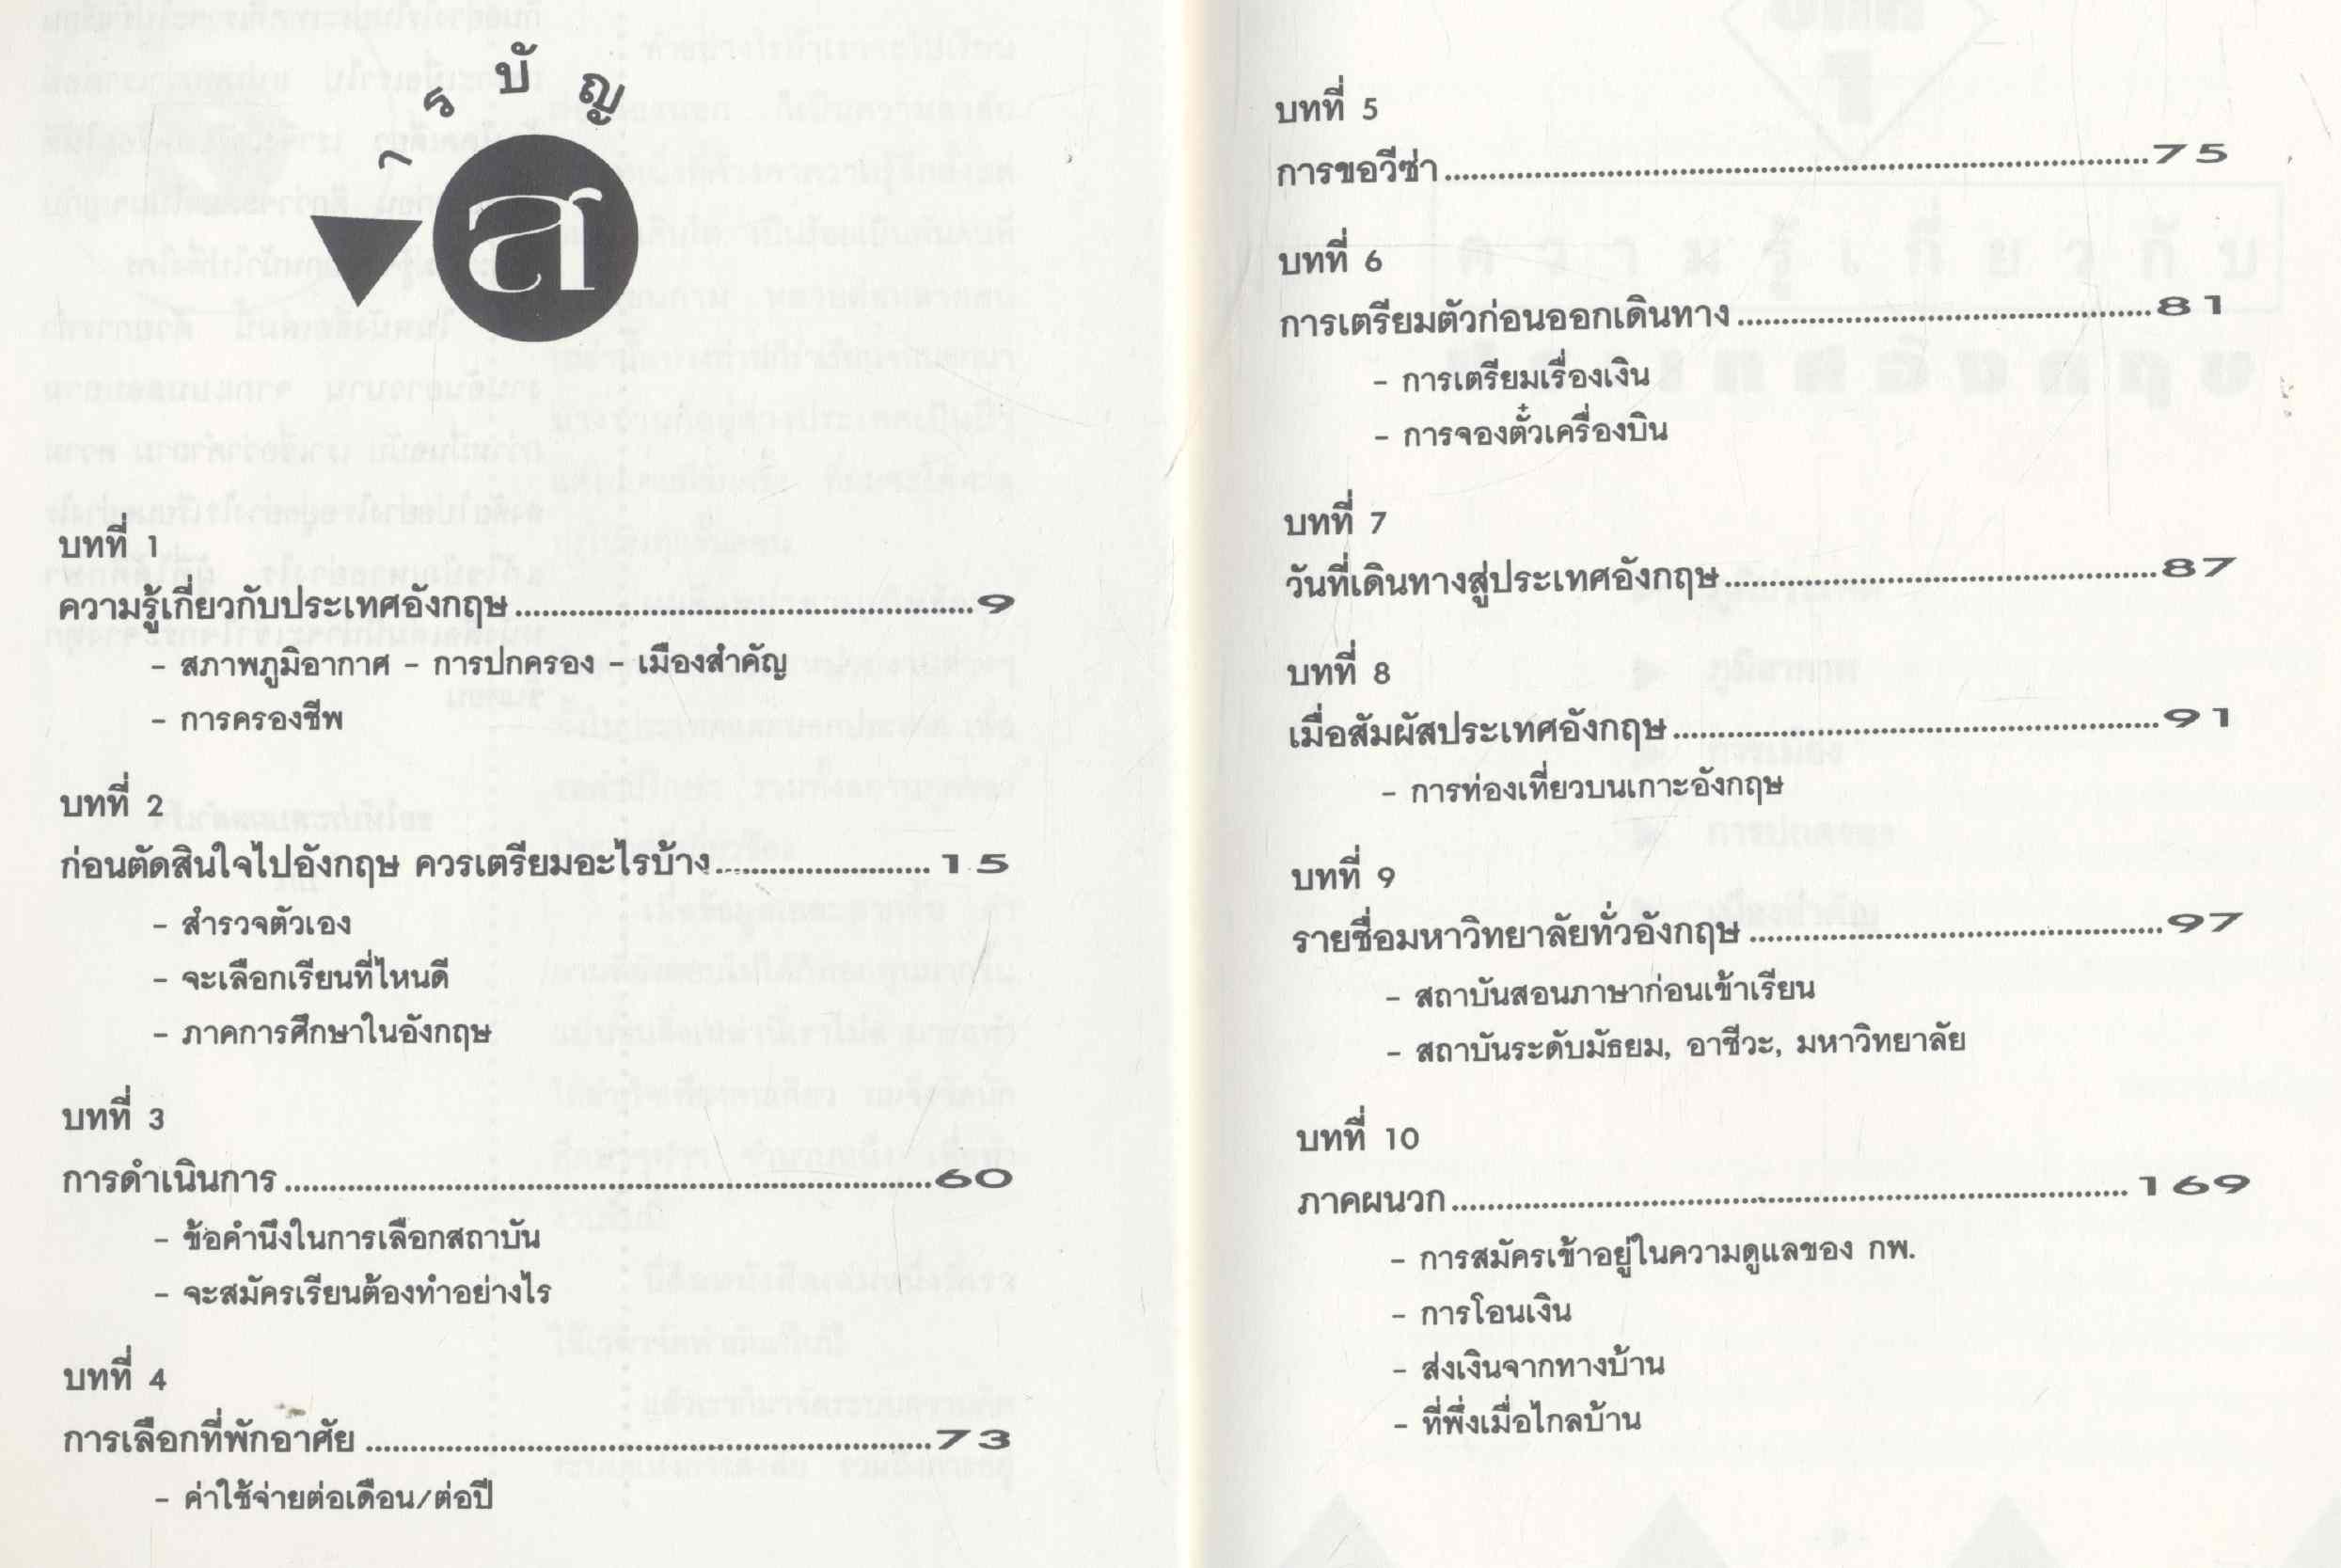 สารบัญ
บทที่ 1
ความรู้เกี่ยวกับประเทศอังกฤษ.....................................................9
– สภาพภูมิอากาศ – การปกครอง – เมืองสำคัญ
– การครองชีพ
บทที่ 2
ก่อนตัดสินใจไปอังกฤษ ควรเตรียมอะไรบ้าง......................... 15
– สำรวจตัวเอง
– จะเลือกเรียนที่ไหนดี
– ภาคการศึกษาในอังกฤษ
บทที่ 3
การดำเนินการ ..........................................................................60
– ข้อคำนึงในการเลือกสถาบัน
– จะสมัครเรียนต้องทำอย่างไร
บทที่ 4
การเลือกที่พักอาศัย .................................................................73
– ค่าใช้จ่ายต่อเดือน/ต่อปี
บทที่ 5
การขอวีซ่า................................................................................75
บทที่ 6
การเตรียมตัวก่อนออกเดินทาง................................................81
– การเตรียมเรื่องเงิน
– การจองตั๋วเครื่องบิน
บทที่ 7
วันที่เดินทางสู่ประเทศอังกฤษ.................................................87
บทที่ 8
เมื่อสัมผัสประเทศอังกฤษ.......................................................91
– การท่องเที่ยวบนเกาะอังกฤษ
บทที่ 9
รายชื่อมหาวิทยาลัยทั่วอังกฤษ ...............................................97
– สถาบันสอนภาษาก่อนเข้าเรียน
– สถาบันระดับมัธยม, อาชีวะ, มหาวิทยาลัย
บทที่ 10
ภาคผนวก............................................................................. 169
– การสมัครเข้าอยู่ในความดูแลของ กพ.
– การโอนเงิน
– ส่งเงินจากทางบ้าน
– ที่พึ่งเมื่อไกลบ้าน